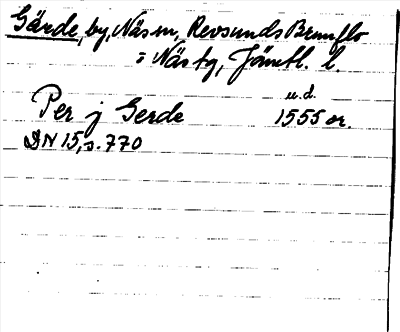 Gärde, by, Näs sn, Revsunds Brunflo
o Näs tg, Jämtl. l.
u.d.
Per j Gerde 1555 or.
DN 15, s. 770